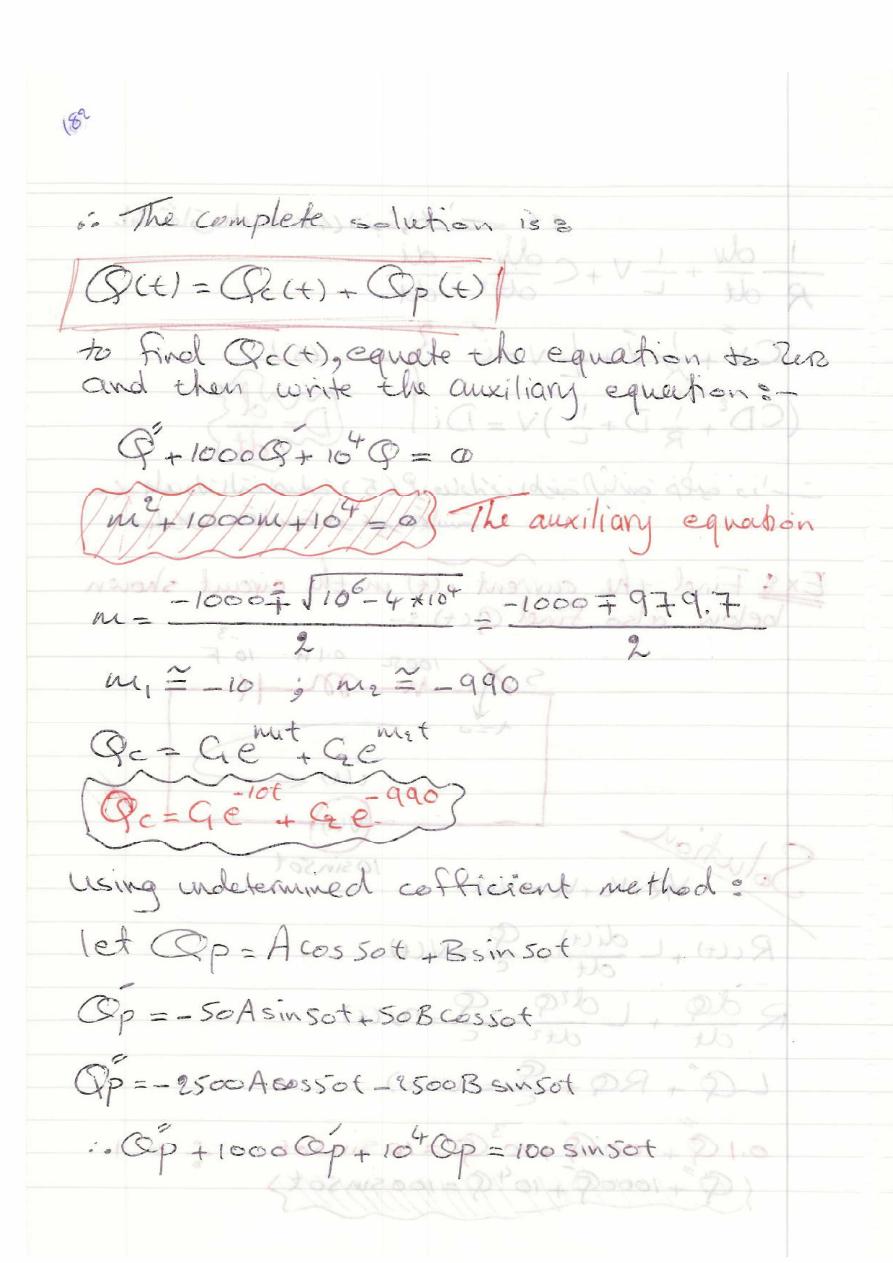 182
∴ The complete solution is :
Q(t) = Qc(t) + Qp(t)
to find Qc(t), equate the equation to zero
and then write the auxiliary equation :-
Q″ + 1000Q′ + 10⁴Q = 0
m² + 1000m + 10⁴ = 0 The auxiliary equation
m = (-1000 ∓ √(10⁶ - 4*10⁴))/2 = (-1000 ∓ 979.7)/2
m₁ ≅ -10 ; m₂ ≅ -990
Qc = C₁e^m₁t + C₂e^m₂t
Qc = C₁e^-10t + C₂e^-990
Using undetermined cofficient method :
let Qp = A cos 50t + B sin 50t
Qp′ = -50A sin50t + 50B cos50t
Qp″ = -2500A cos50t - 2500B sin50t
∴ Qp″ + 1000Qp′ + 10⁴Qp = 100 sin50t